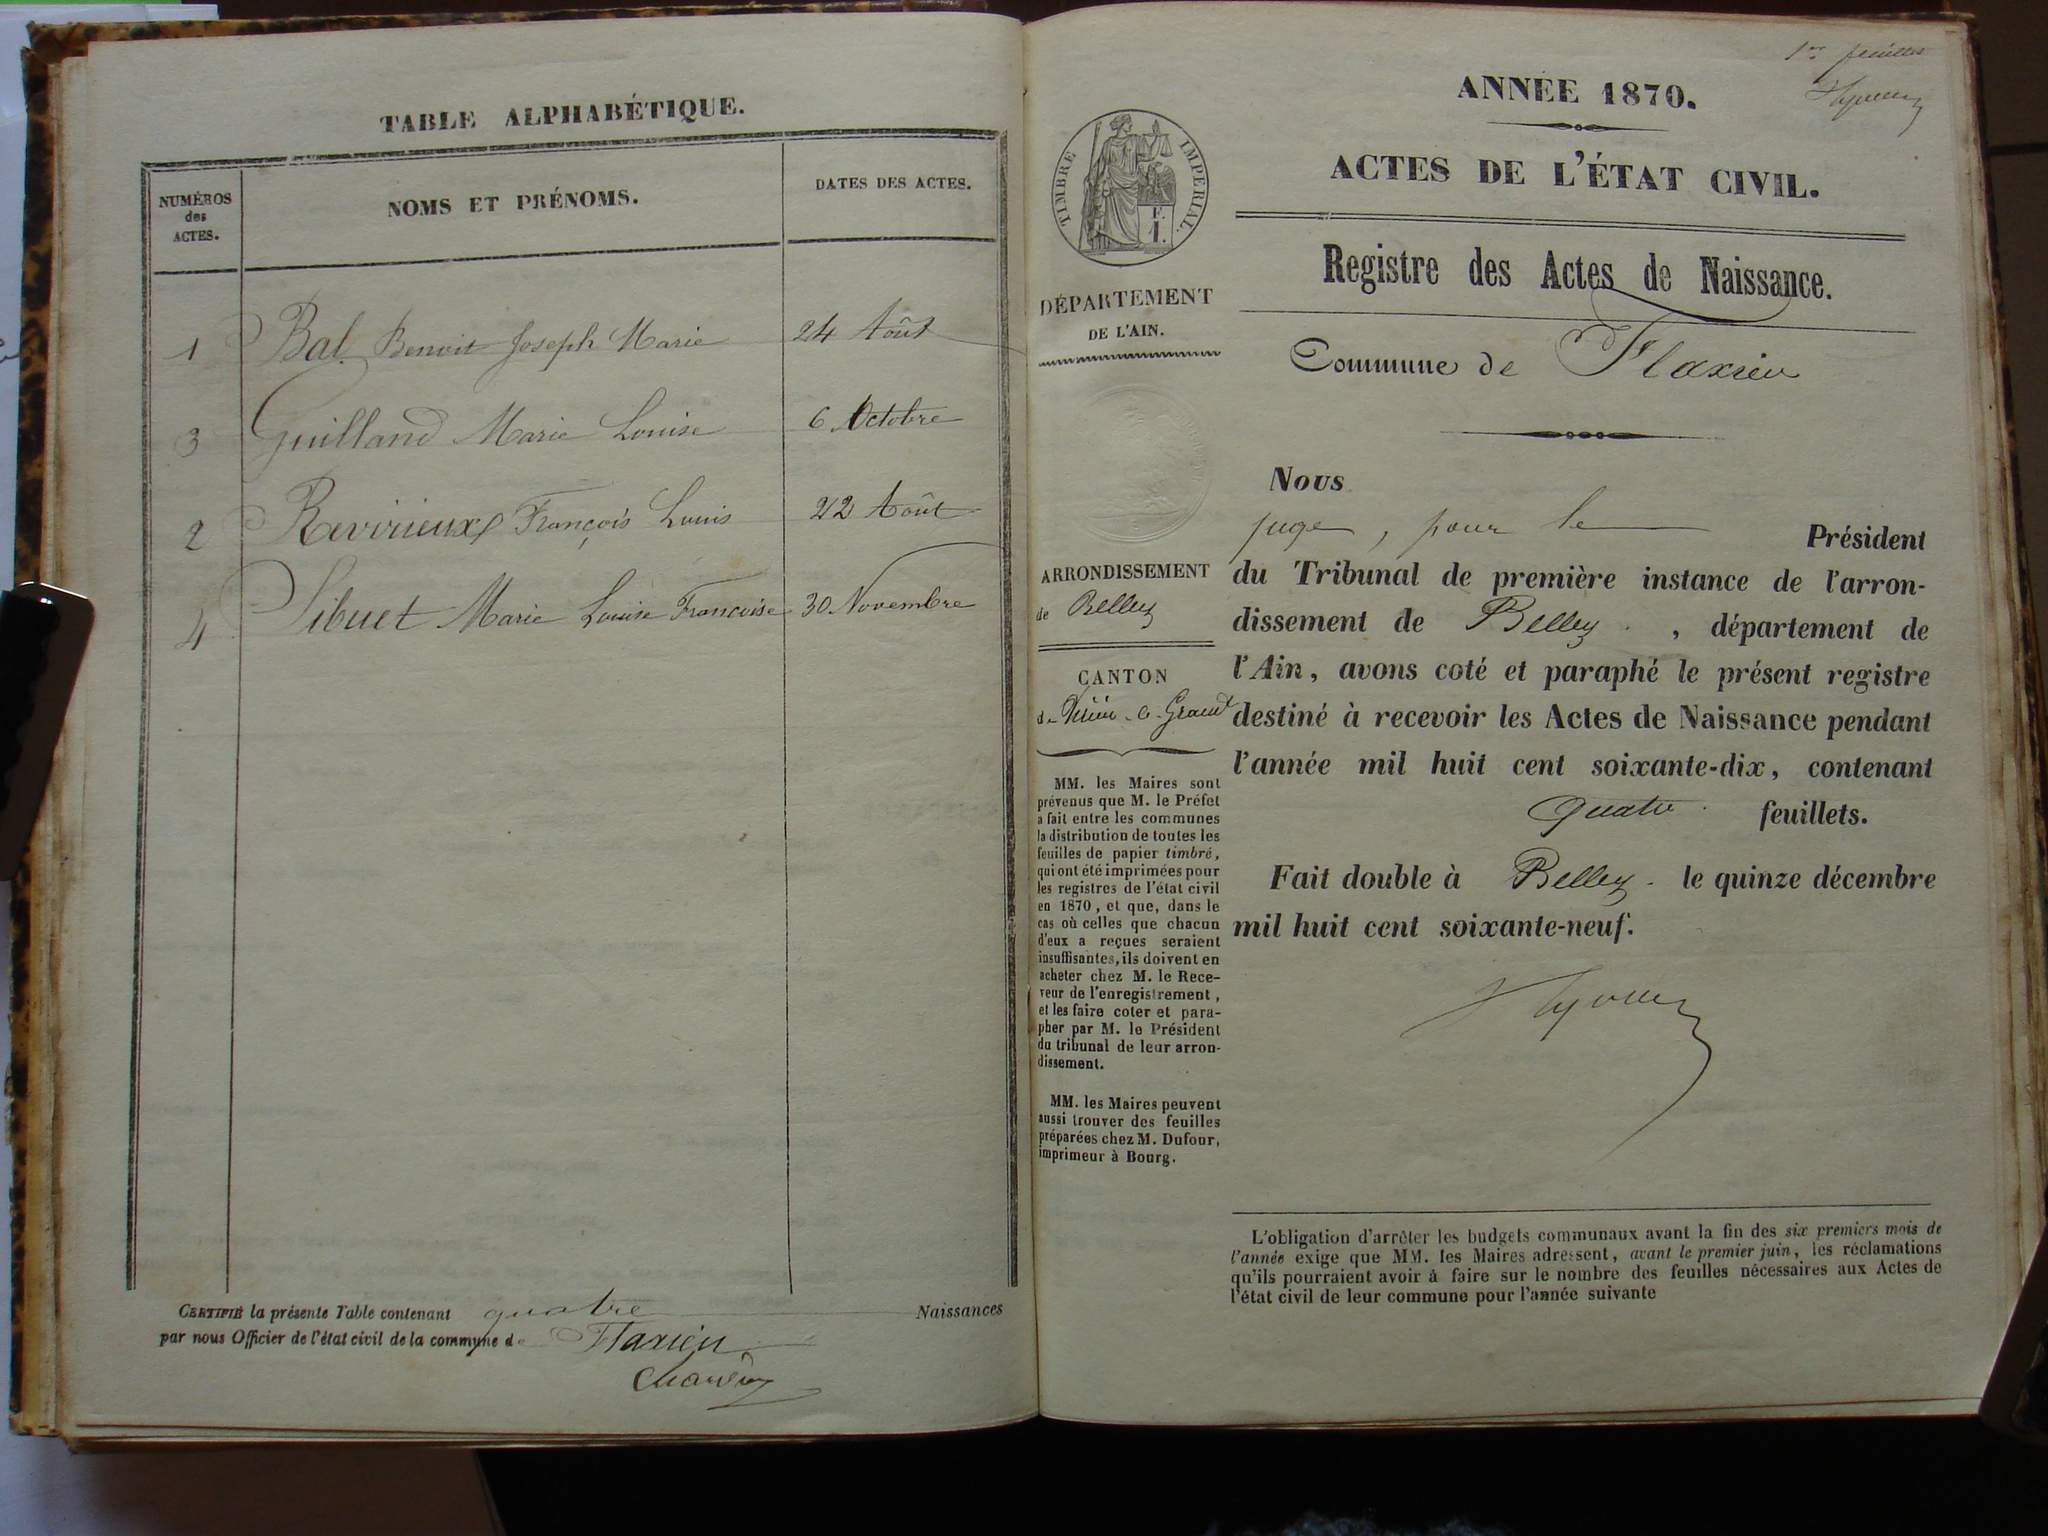 TABLE ALPHABÉTIQUE.
NUMÉROS
des
ACTES.
NOMS ET PRÉNOMS.
DATES DES ACTES.
1 Bal Benoit Joseph Marie 24 Août
3 Guilland Marie Louise 6 Octobre
2 Ravirieux François Louis 22 Août
4 Sibuet Marie Louise Françoise 30 Novembre
CERTIFIÉ la présente Table contenant quatre Naissances
par nous Officier de l'état civil de la commune de Flaxieu
1er feuillet
ANNÉE 1870.
ACTES DE L'ÉTAT CIVIL.
Registre des Actes de Naissance.
Commune de Flaxieu
TIMBRE IMPERIAL.
F.
1.
DÉPARTEMENT
DE L'AIN.
ARRONDISSEMENT
de Belley
CANTON
de Virieu-le-Grand
MM. les Maires sont
prévenus que M. le Préfet
a fait entre les communes
la distribution de toutes les
feuilles de papier timbré,
qui ont été imprimées pour
les registres de l'état civil
en 1870, et que, dans le
cas où celles que chacun
d'eux a reçues seraient
insuffisantes, ils doivent en
acheter chez M. le Rece-
veur de l'enregistrement,
et les faire coter et para-
pher par M. le Président
du tribunal de leur arron-
dissement.
MM. les Maires peuvent
aussi trouver des feuilles
préparées chez M. Dufour,
imprimeur à Bourg.
Nous
juge, pour le Président
du Tribunal de première instance de l'arron-
dissement de Belley, département de
l'Ain, avons coté et paraphé le présent registre
destiné à recevoir les Actes de Naissance pendant
l'année mil huit cent soixante-dix, contenant
quatre feuillets.
Fait double à Belley le quinze décembre
mil huit cent soixante-neuf.
L'obligation d'arrêter les budgets communaux avant la fin des six premiers mois de
l'année exige que MM. les Maires adressent, avant le premier juin, les réclamations
qu'ils pourraient avoir à faire sur le nombre des feuilles nécessaires aux Actes de
l'état civil de leur commune pour l'année suivante